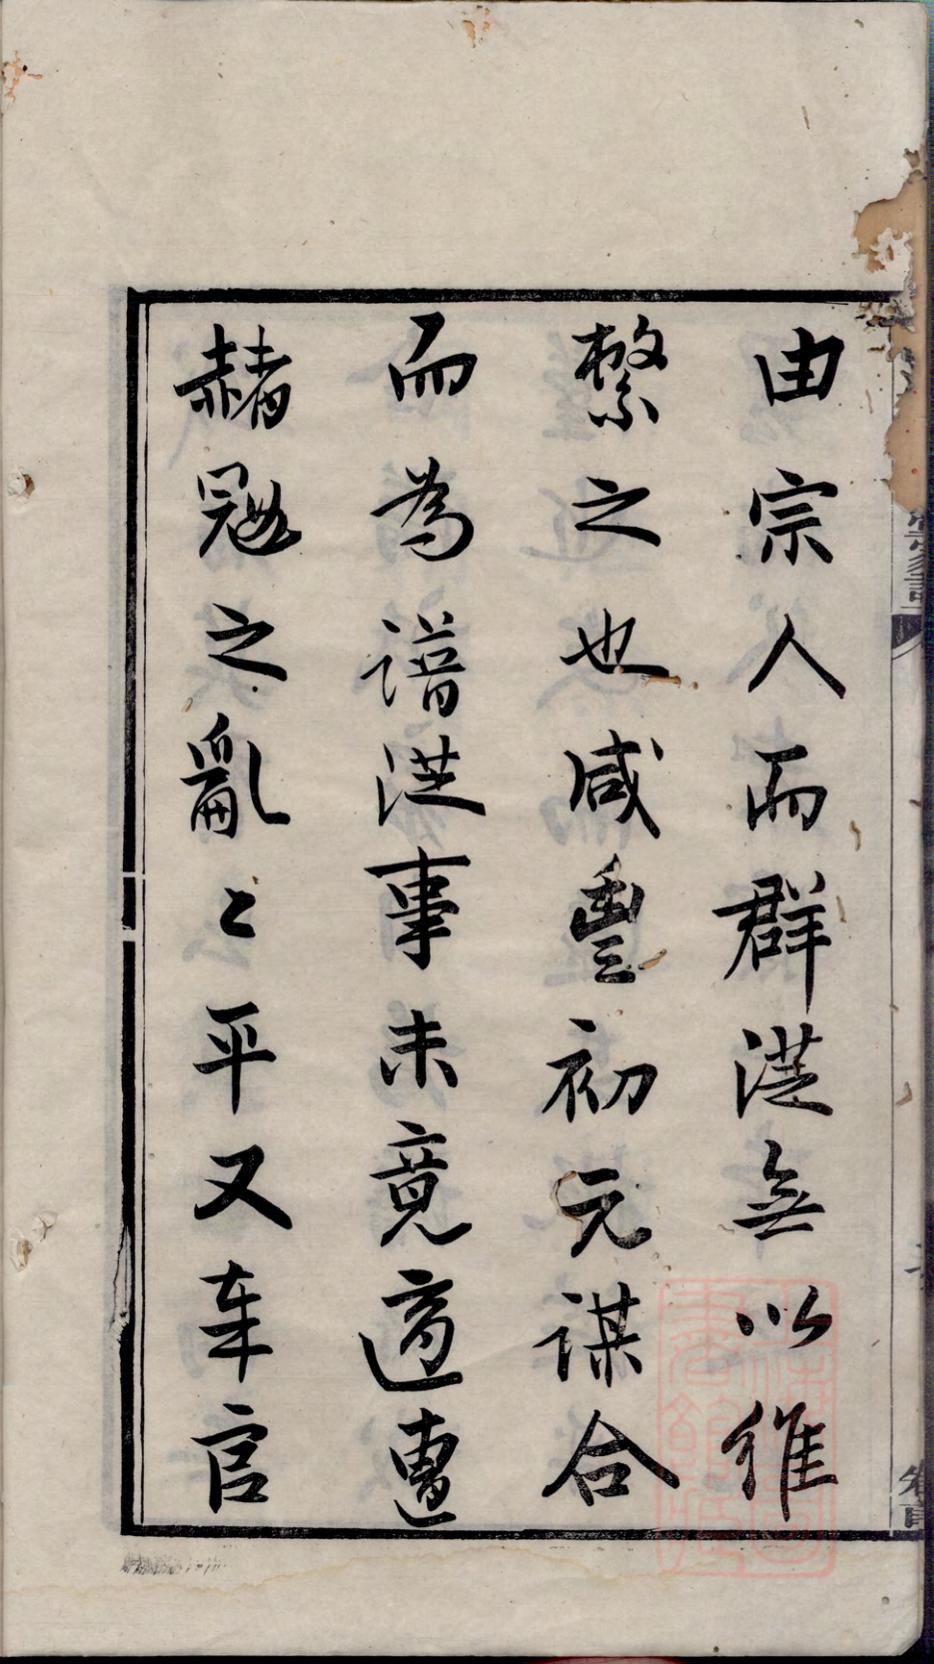 由宗人而群從無以維
繫之也咸豐初元謀合
而為譜從事未竟適遭
赭寇之亂〻平又牽官